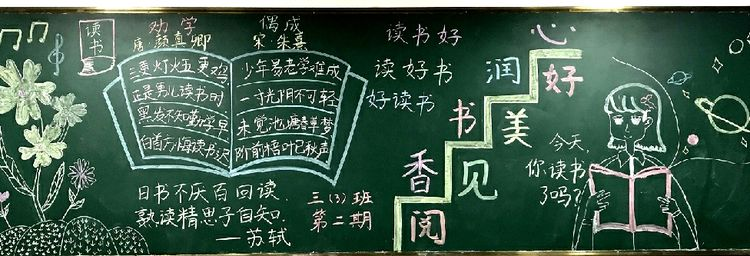 读书
劝学
唐·颜真卿
三更灯火五更鸡
正是男儿读书时
黑发不知勤学早
白首方悔读书迟
偶成
宋·朱熹
少年易老学难成
一寸光阴不可轻
未觉池塘春草梦
阶前梧叶已秋声
旧书不厌百回读,
熟读精思子自知.
——苏轼
三(3)班
第二期
读书好
读好书
好读书
香书润心
阅见美好
今天,
你读书
了吗?